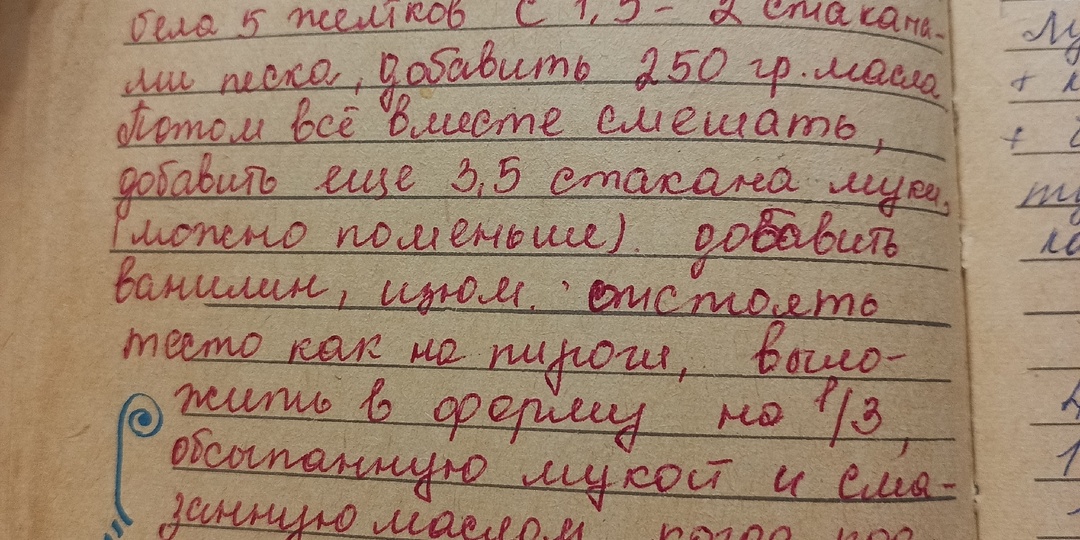 бела 5 желтков с 1,5 - 2 стакана-
ми песка, добавить 250 гр. масла
Потом всё вместе смешать,
добавить еще 3,5 стакана муки,
(можно поменьше). добавить
ванилин, изюм. отстоять
тесто как на пироги, выло-
жить в форму на 1/3,
обсыпанную мукой и сма-
занную маслом, когда